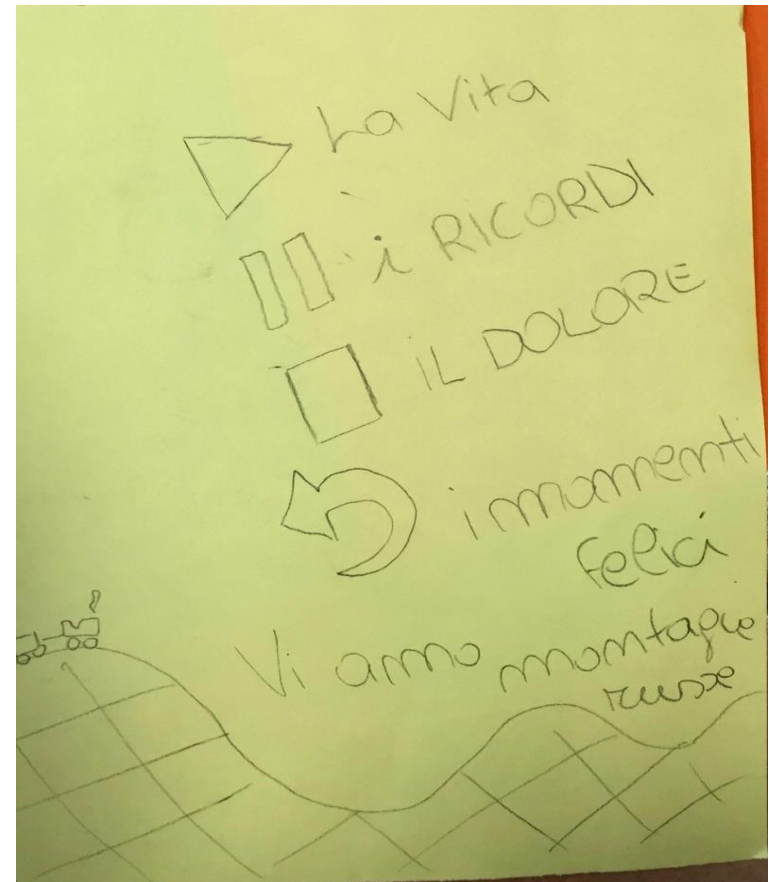 La Vita
i RICORDI
iL DOLORE
i momenti
felici
Vi amo montagne
russe